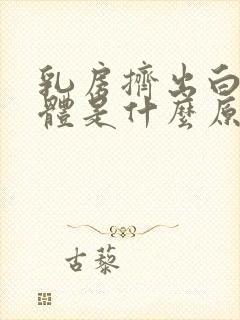 乳房擠出白
體是什麼原
古藜